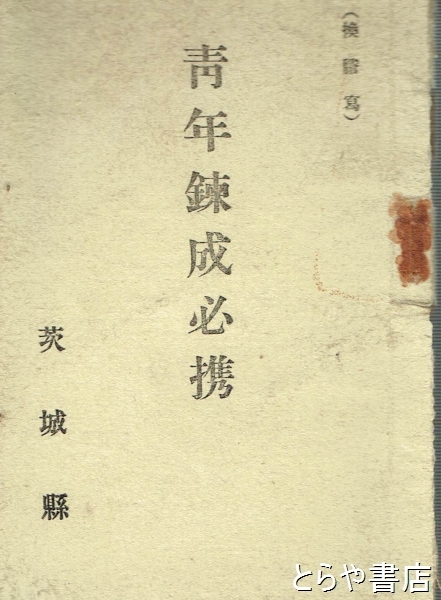 (換謄寫)
靑年鍊成必携
茨城縣
とらや書店